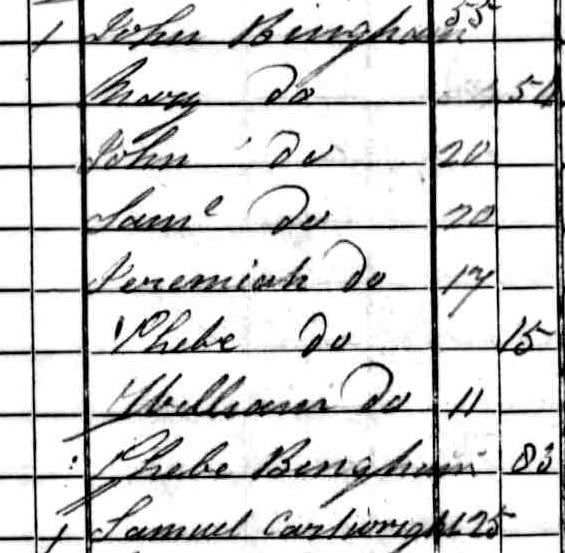 1 John Bingham 55
Mary do 50
John do 20
Saml do 20
Jeremiah do 17
Phebe do 15
William do 11
Phebe Bingham 83
1 Samuel Cartwright 25